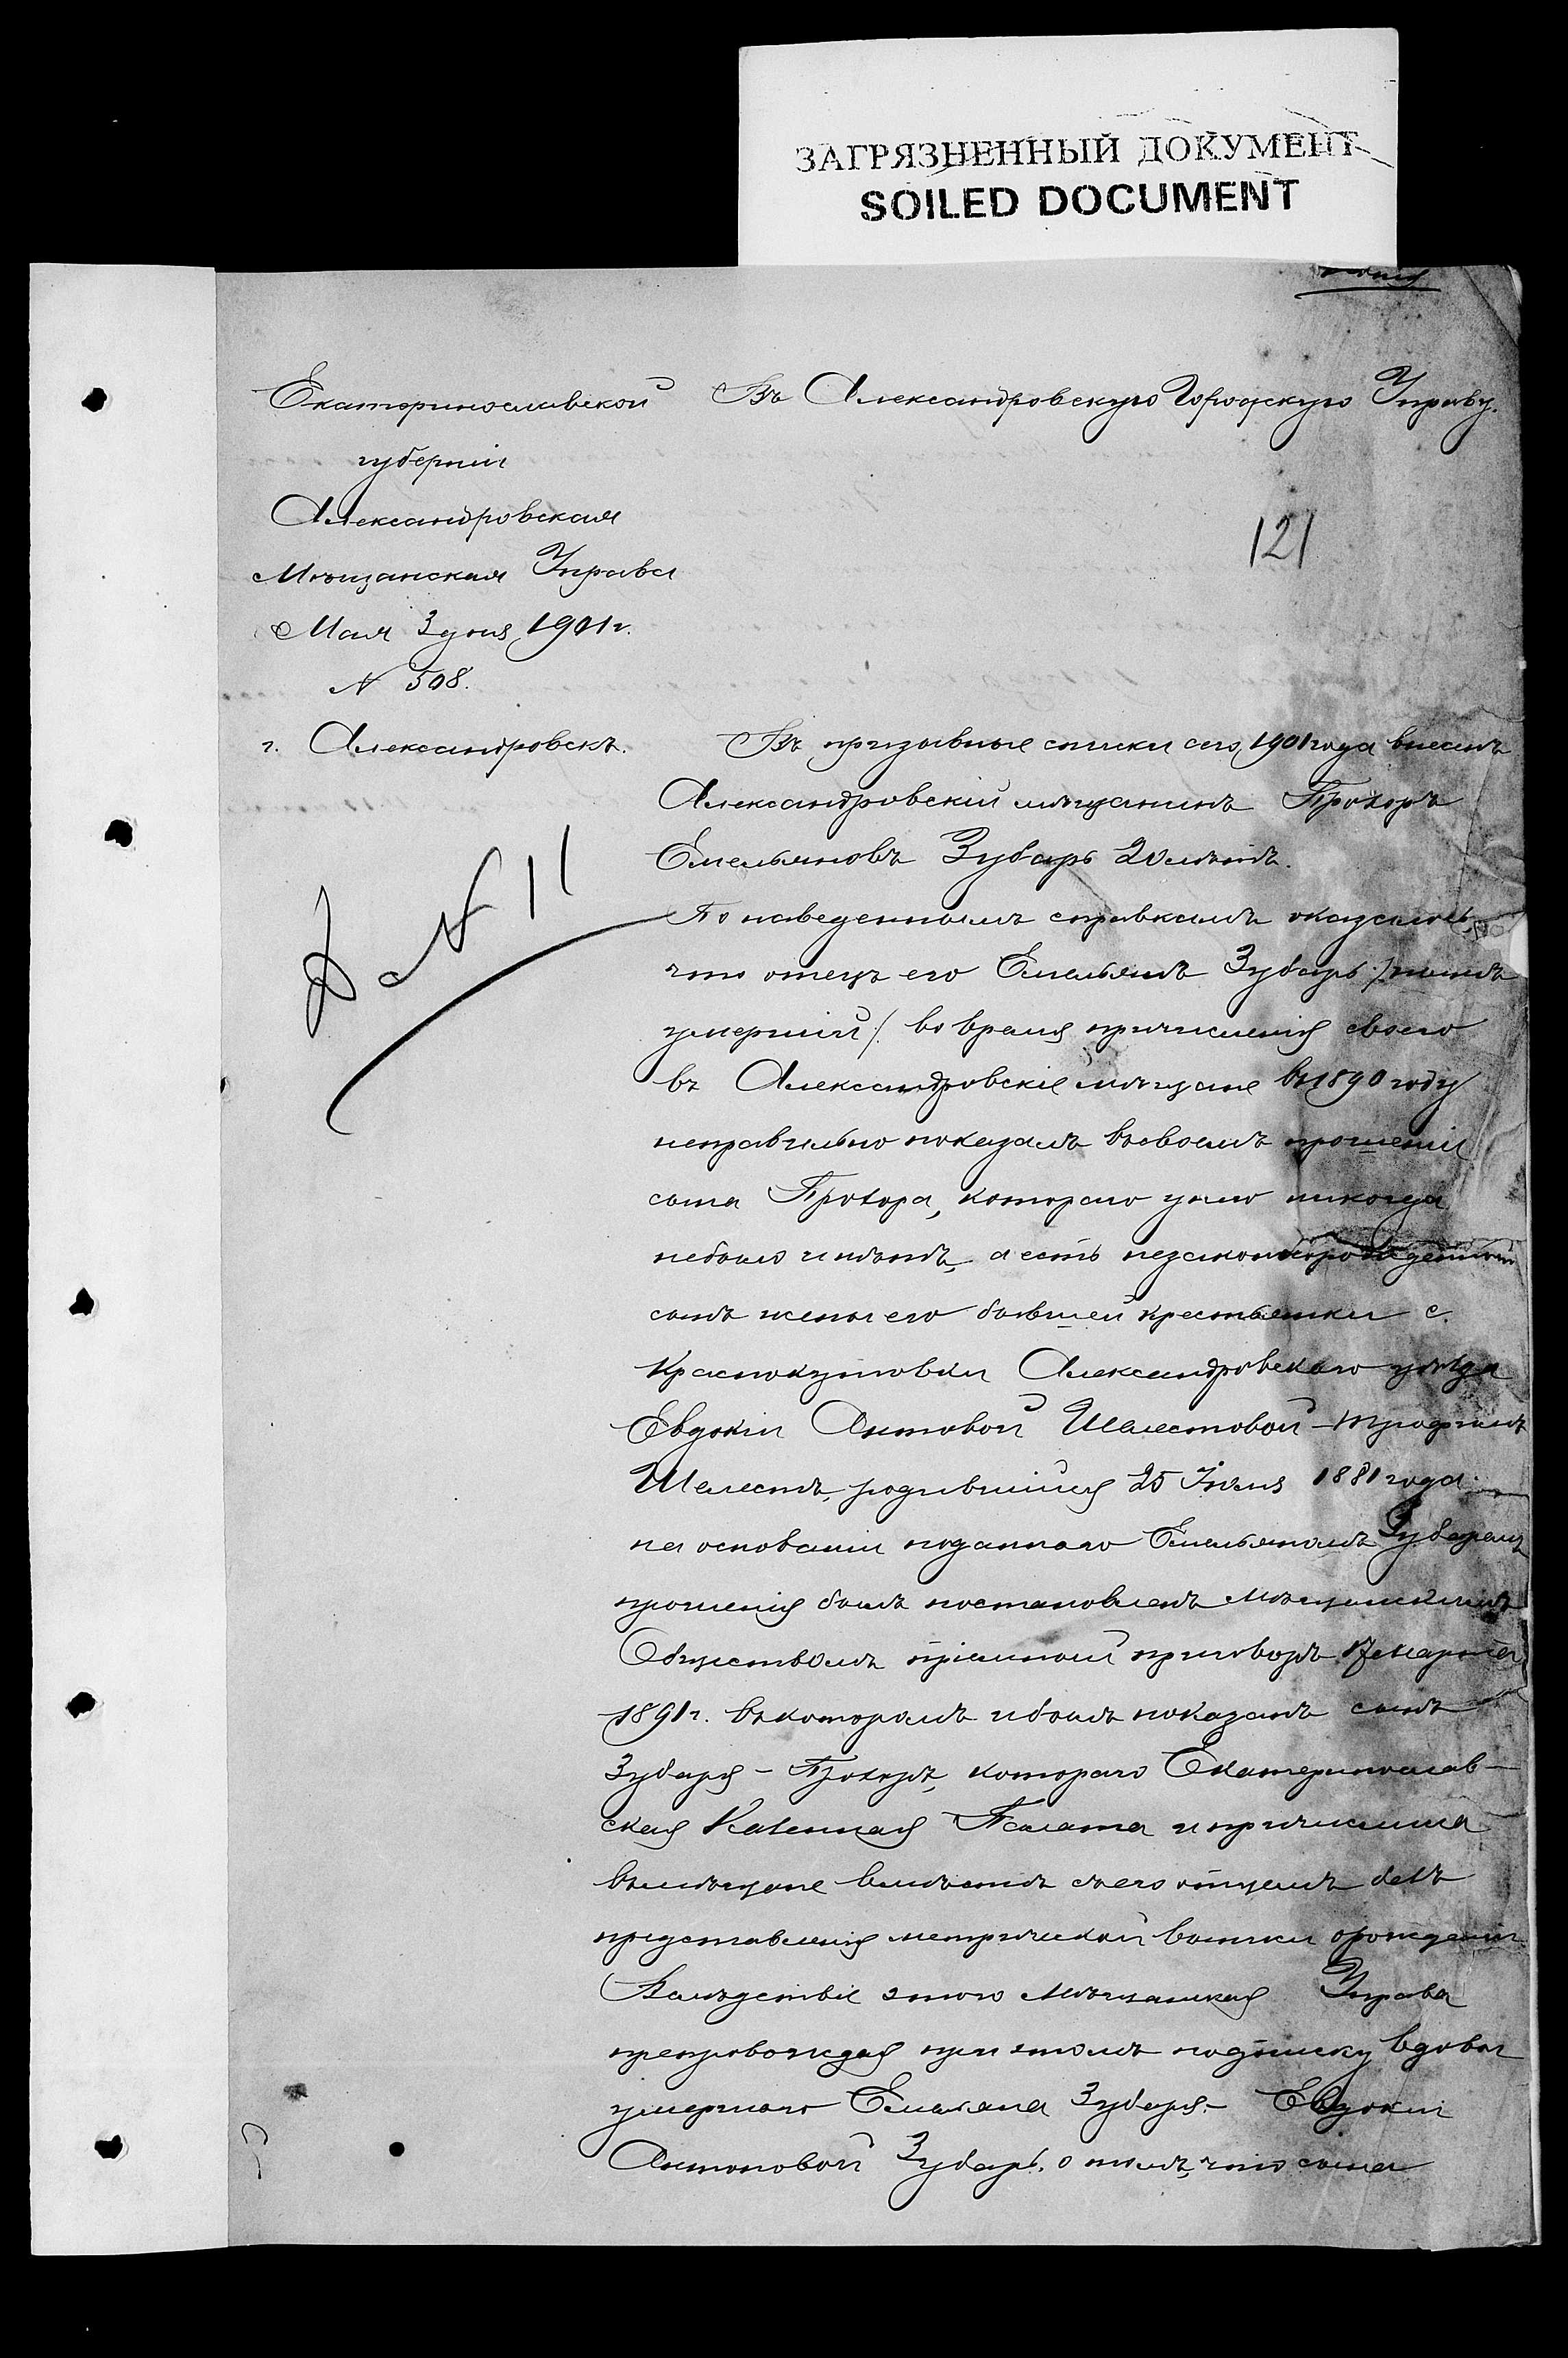 ЗАГРЯЗНЕННЫЙ ДОКУМЕНТ
SOILED DOCUMENT
Екатеринославской
губерніи
Александровская
Мѣщанская Управа
Мая 3 дня 1901 г.
№ 508.
г. Александровскъ.
Въ Александровскую Городскую Управу.
121
№ 11
Въ призывные списки сего 1901 года внесенъ
Александровскій мѣщанинъ Прохоръ
Емельяновъ Зубарь 20 лѣтъ.
По наведеннымъ справкамъ оказалось,
что отецъ его Емельянъ Зубарь /нынѣ
умершій/ во время причисленія своего
въ Александровскіе мѣщане въ 1890 году
неправильно показалъ въ своемъ прошеніи
сына Прохора, котораго у него никогда
небыло и нѣтъ, а есть незаконнорожденный
сынъ жены его бывшей крестьянки с.
Краснокутовки Александровскаго уѣзда
Евдокіи Антовой Шелестовой - Трофимъ
Шелестъ, родившійся 25 Іюля 1881 года
на основаніи поданнаго Емельяномъ Зубаремъ
прошенія былъ постановленъ Мѣщанскимъ
Обществомъ пріемный приговоръ 17 Марта
1891 г. въ которомъ и былъ показанъ сынъ
Зубаря - Прохоръ, котораго Екатеринослав-
ская Казенная Палата и причислила
въ мѣщане вмѣстѣ съ его отцемъ безъ
представленія метрической выписи о рожденіи
Вслѣдствіе этого Мѣщанская Управа
препровождая при этомъ подписку вдовы
умершаго Емельяна Зубаря - Евдокіи
Антоновой Зубарь, о томъ, что сына